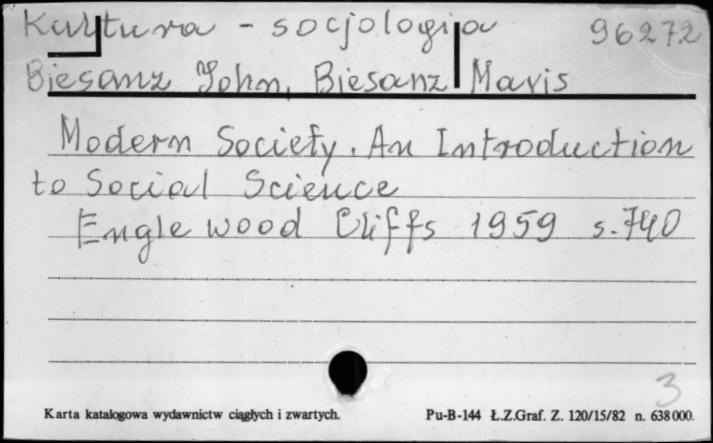 Kultura - socjologija 96272
Biesanz John, Biesanz Mavis
Modern Society. An Introduction
to Social Science
Englewood Cliffs 1959 s. 740
3
Karta katalogowa wydawnictw ciągłych i zwartych. Pu-B-144 Ł.Z.Graf. Z. 120/15/82 n. 638000.